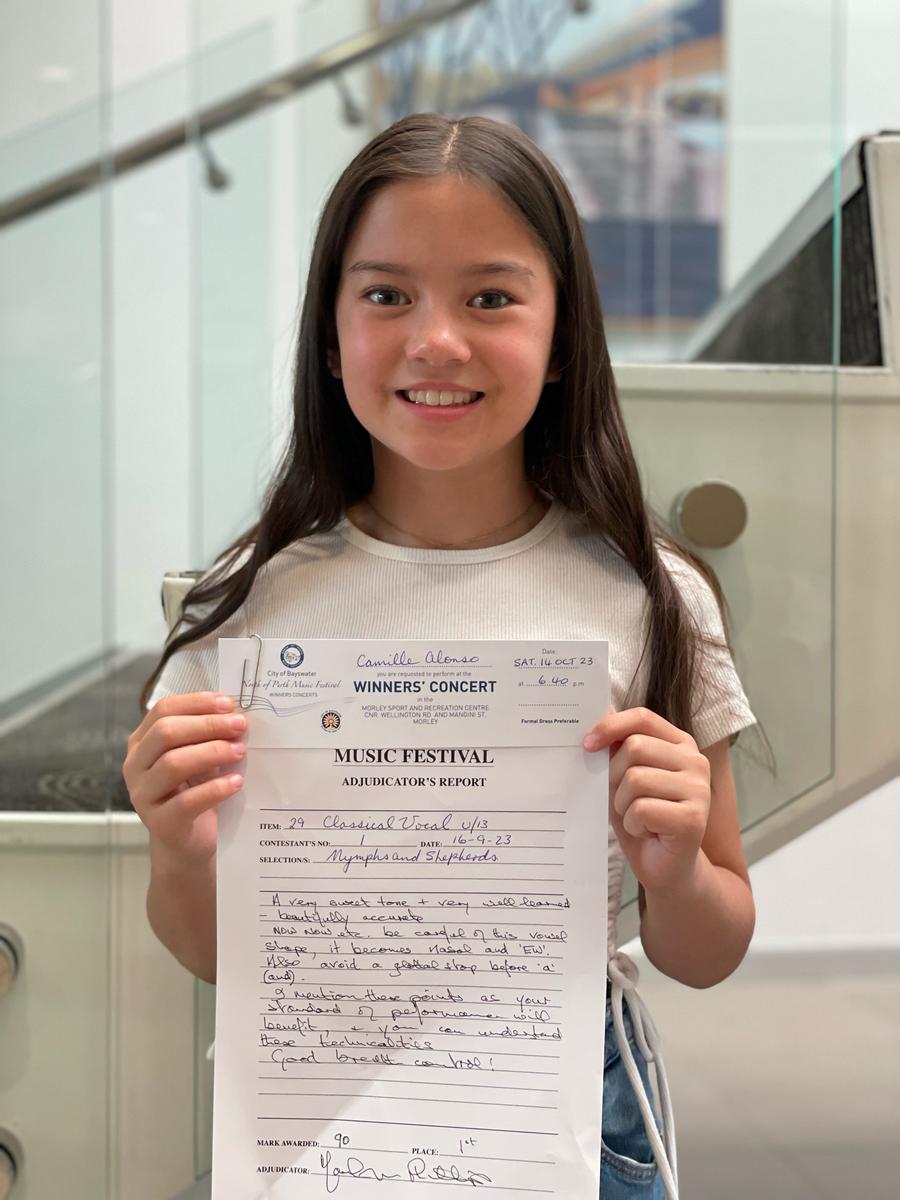 City of Bayswater
North of Perth Music Festival
WINNERS CONCERTS
Camille Alonso
you are requested to perform at the
WINNERS' CONCERT
in the
MORLEY SPORT AND RECREATION CENTRE
CNR. WELLINGTON RD AND MANGINI ST,
MORLEY
Date:
SAT. 14 OCT 23
at 6.40 p.m
Formal Dress Preferable
MUSIC FESTIVAL
ADJUDICATOR'S REPORT
ITEM: 29 Classical Vocal U/13
CONTESTANT'S NO: 1 DATE: 16-9-23
SELECTION/S: Nymphs and Shepherds
A very sweet tone + very well learned
- beautifully accurate
NOW NOW etc. be careful of this vowel
shape, it becomes nasal and 'EW'.
Also avoid a glottal stop before 'a'
(and).
I mention these points as your
standard of performance will
benefit, + you can understand
these technicalities
Good breath control!
MARK AWARDED: 90 PLACE: 1st
ADJUDICATOR: